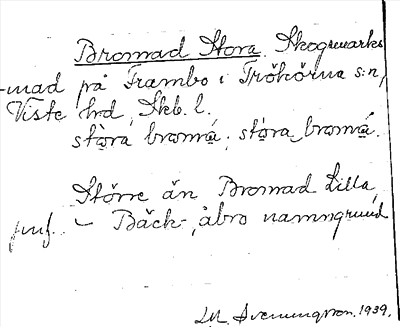 Bromad Stora. Skogsmarks
-mad på Frambo i Trökörna s:n,
Viste hrd, Skb. l.
stòra bromá; stòra bromá.
Större än Bromad Lilla,
jmf. – Bäck-, åbro namngrund
Svenningson. 1939.